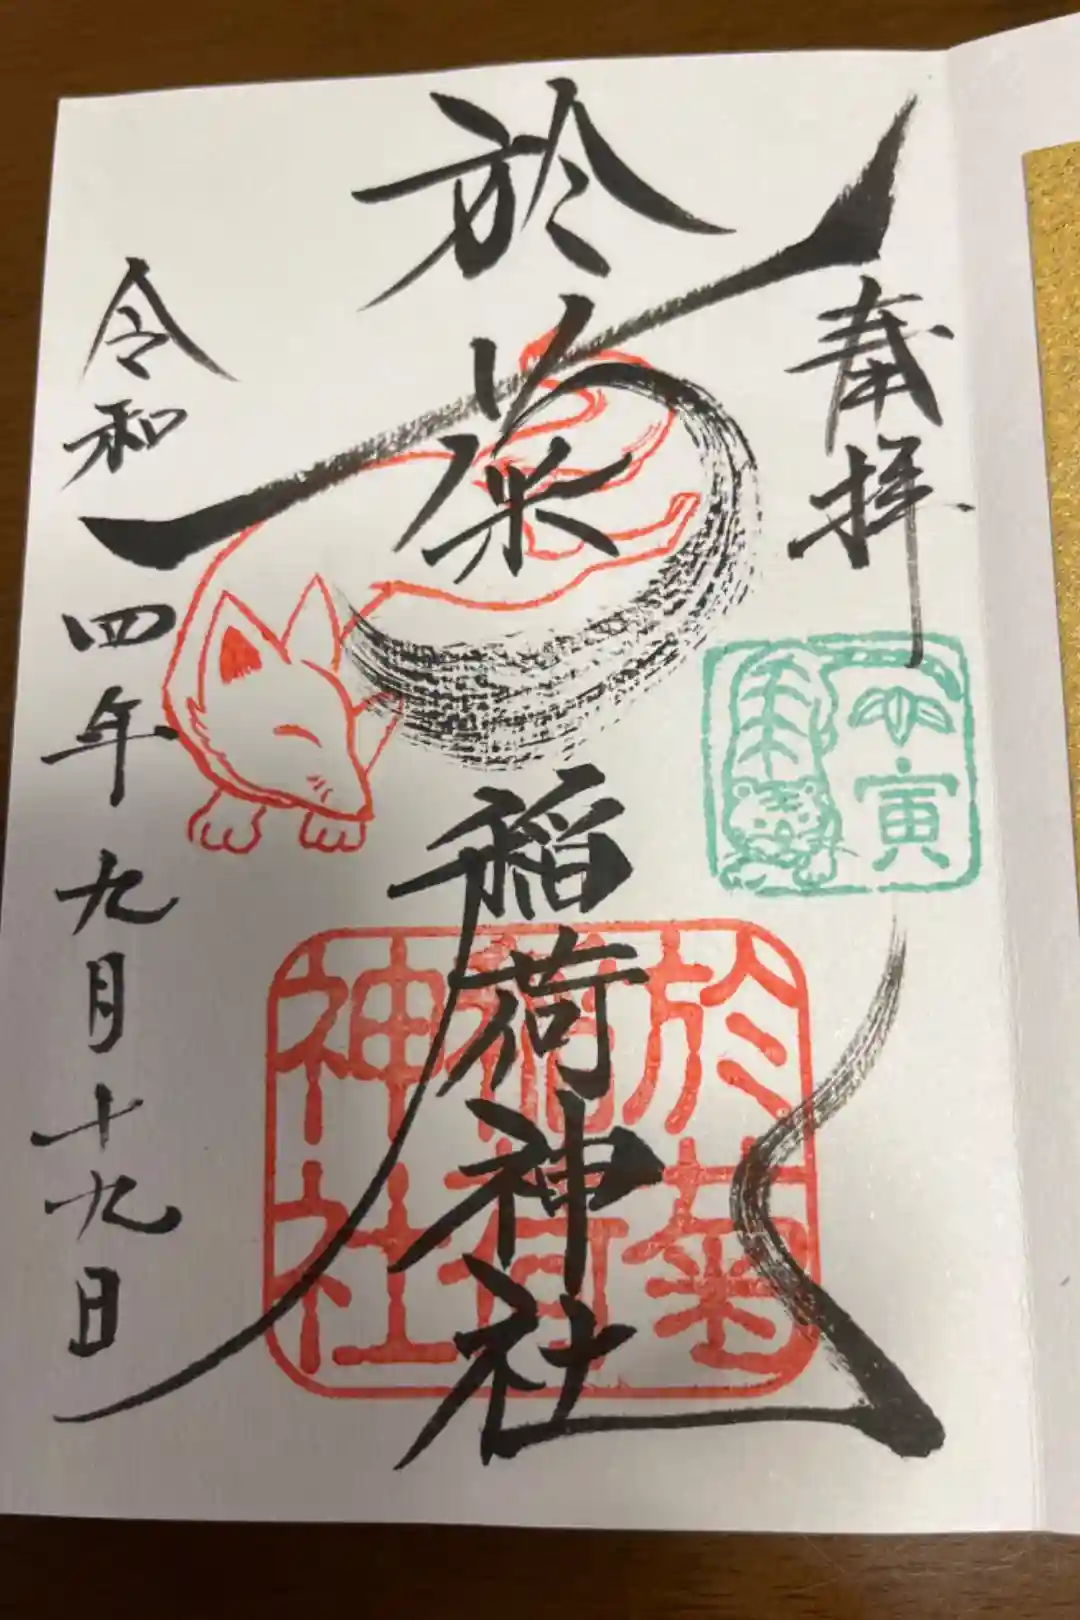 奉拝
壬寅
於菊稲荷神社
於菊
稲荷
神社
令和四年九月十九日